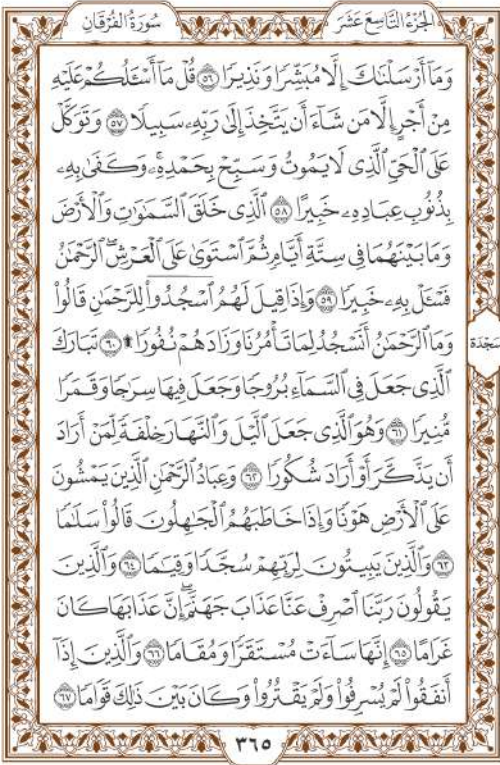 سُورَةُ الفُرْقَانِ
الجُزْءُ التَّاسِعَ عَشَرَ
وَمَآ أَرْسَلْنَٰكَ إِلَّا مُبَشِّرًا وَنَذِيرًا ٥٦ قُلْ مَآ أَسْـَٔلُكُمْ عَلَيْهِ
مِنْ أَجْرٍ إِلَّا مَن شَآءَ أَن يَتَّخِذَ إِلَىٰ رَبِّهِۦ سَبِيلًا ٥٧ وَتَوَكَّلْ
عَلَى ٱلْحَيِّ ٱلَّذِى لَا يَمُوتُ وَسَبِّحْ بِحَمْدِهِۦۚ وَكَفَىٰ بِهِۦ
بِذُنُوبِ عِبَادِهِۦ خَبِيرًا ٥٨ ٱلَّذِى خَلَقَ ٱلسَّمَٰوَٰتِ وَٱلْأَرْضَ
وَمَا بَيْنَهُمَا فِى سِتَّةِ أَيَّامٍ ثُمَّ ٱسْتَوَىٰ عَلَى ٱلْعَرْشِۖ ٱلرَّحْمَٰنُ
فَسْـَٔلْ بِهِۦ خَبِيرًا ٥٩ وَإِذَا قِيلَ لَهُمُ ٱسْجُدُوا۟ لِلرَّحْمَٰنِ قَالُوا۟
وَمَا ٱلرَّحْمَٰنُ أَنَسْجُدُ لِمَا تَأْمُرُنَا وَزَادَهُمْ نُفُورًا ۩ ٦٠ تَبَارَكَ
سَجْدَة
ٱلَّذِى جَعَلَ فِى ٱلسَّمَآءِ بُرُوجًا وَجَعَلَ فِيهَا سِرَٰجًا وَقَمَرًا
مُّنِيرًا ٦١ وَهُوَ ٱلَّذِى جَعَلَ ٱلَّيْلَ وَٱلنَّهَارَ خِلْفَةً لِّمَنْ أَرَادَ
أَن يَذَّكَّرَ أَوْ أَرَادَ شُكُورًا ٦٢ وَعِبَادُ ٱلرَّحْمَٰنِ ٱلَّذِينَ يَمْشُونَ
عَلَى ٱلْأَرْضِ هَوْنًا وَإِذَا خَاطَبَهُمُ ٱلْجَٰهِلُونَ قَالُوا۟ سَلَٰمًا
٦٣ وَٱلَّذِينَ يَبِيتُونَ لِرَبِّهِمْ سُجَّدًا وَقِيَٰمًا ٦٤ وَٱلَّذِينَ
يَقُولُونَ رَبَّنَا ٱصْرِفْ عَنَّا عَذَابَ جَهَنَّمَۖ إِنَّ عَذَابَهَا كَانَ
غَرَامًا ٦٥ إِنَّهَا سَآءَتْ مُسْتَقَرًّا وَمُقَامًا ٦٦ وَٱلَّذِينَ إِذَآ
أَنفَقُوا۟ لَمْ يُسْرِفُوا۟ وَلَمْ يَقْتُرُوا۟ وَكَانَ بَيْنَ ذَٰلِكَ قَوَامًا ٦٧
٣٦٥